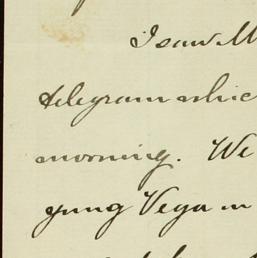 I saw M
telegram whic
morning. We
yung Vega in